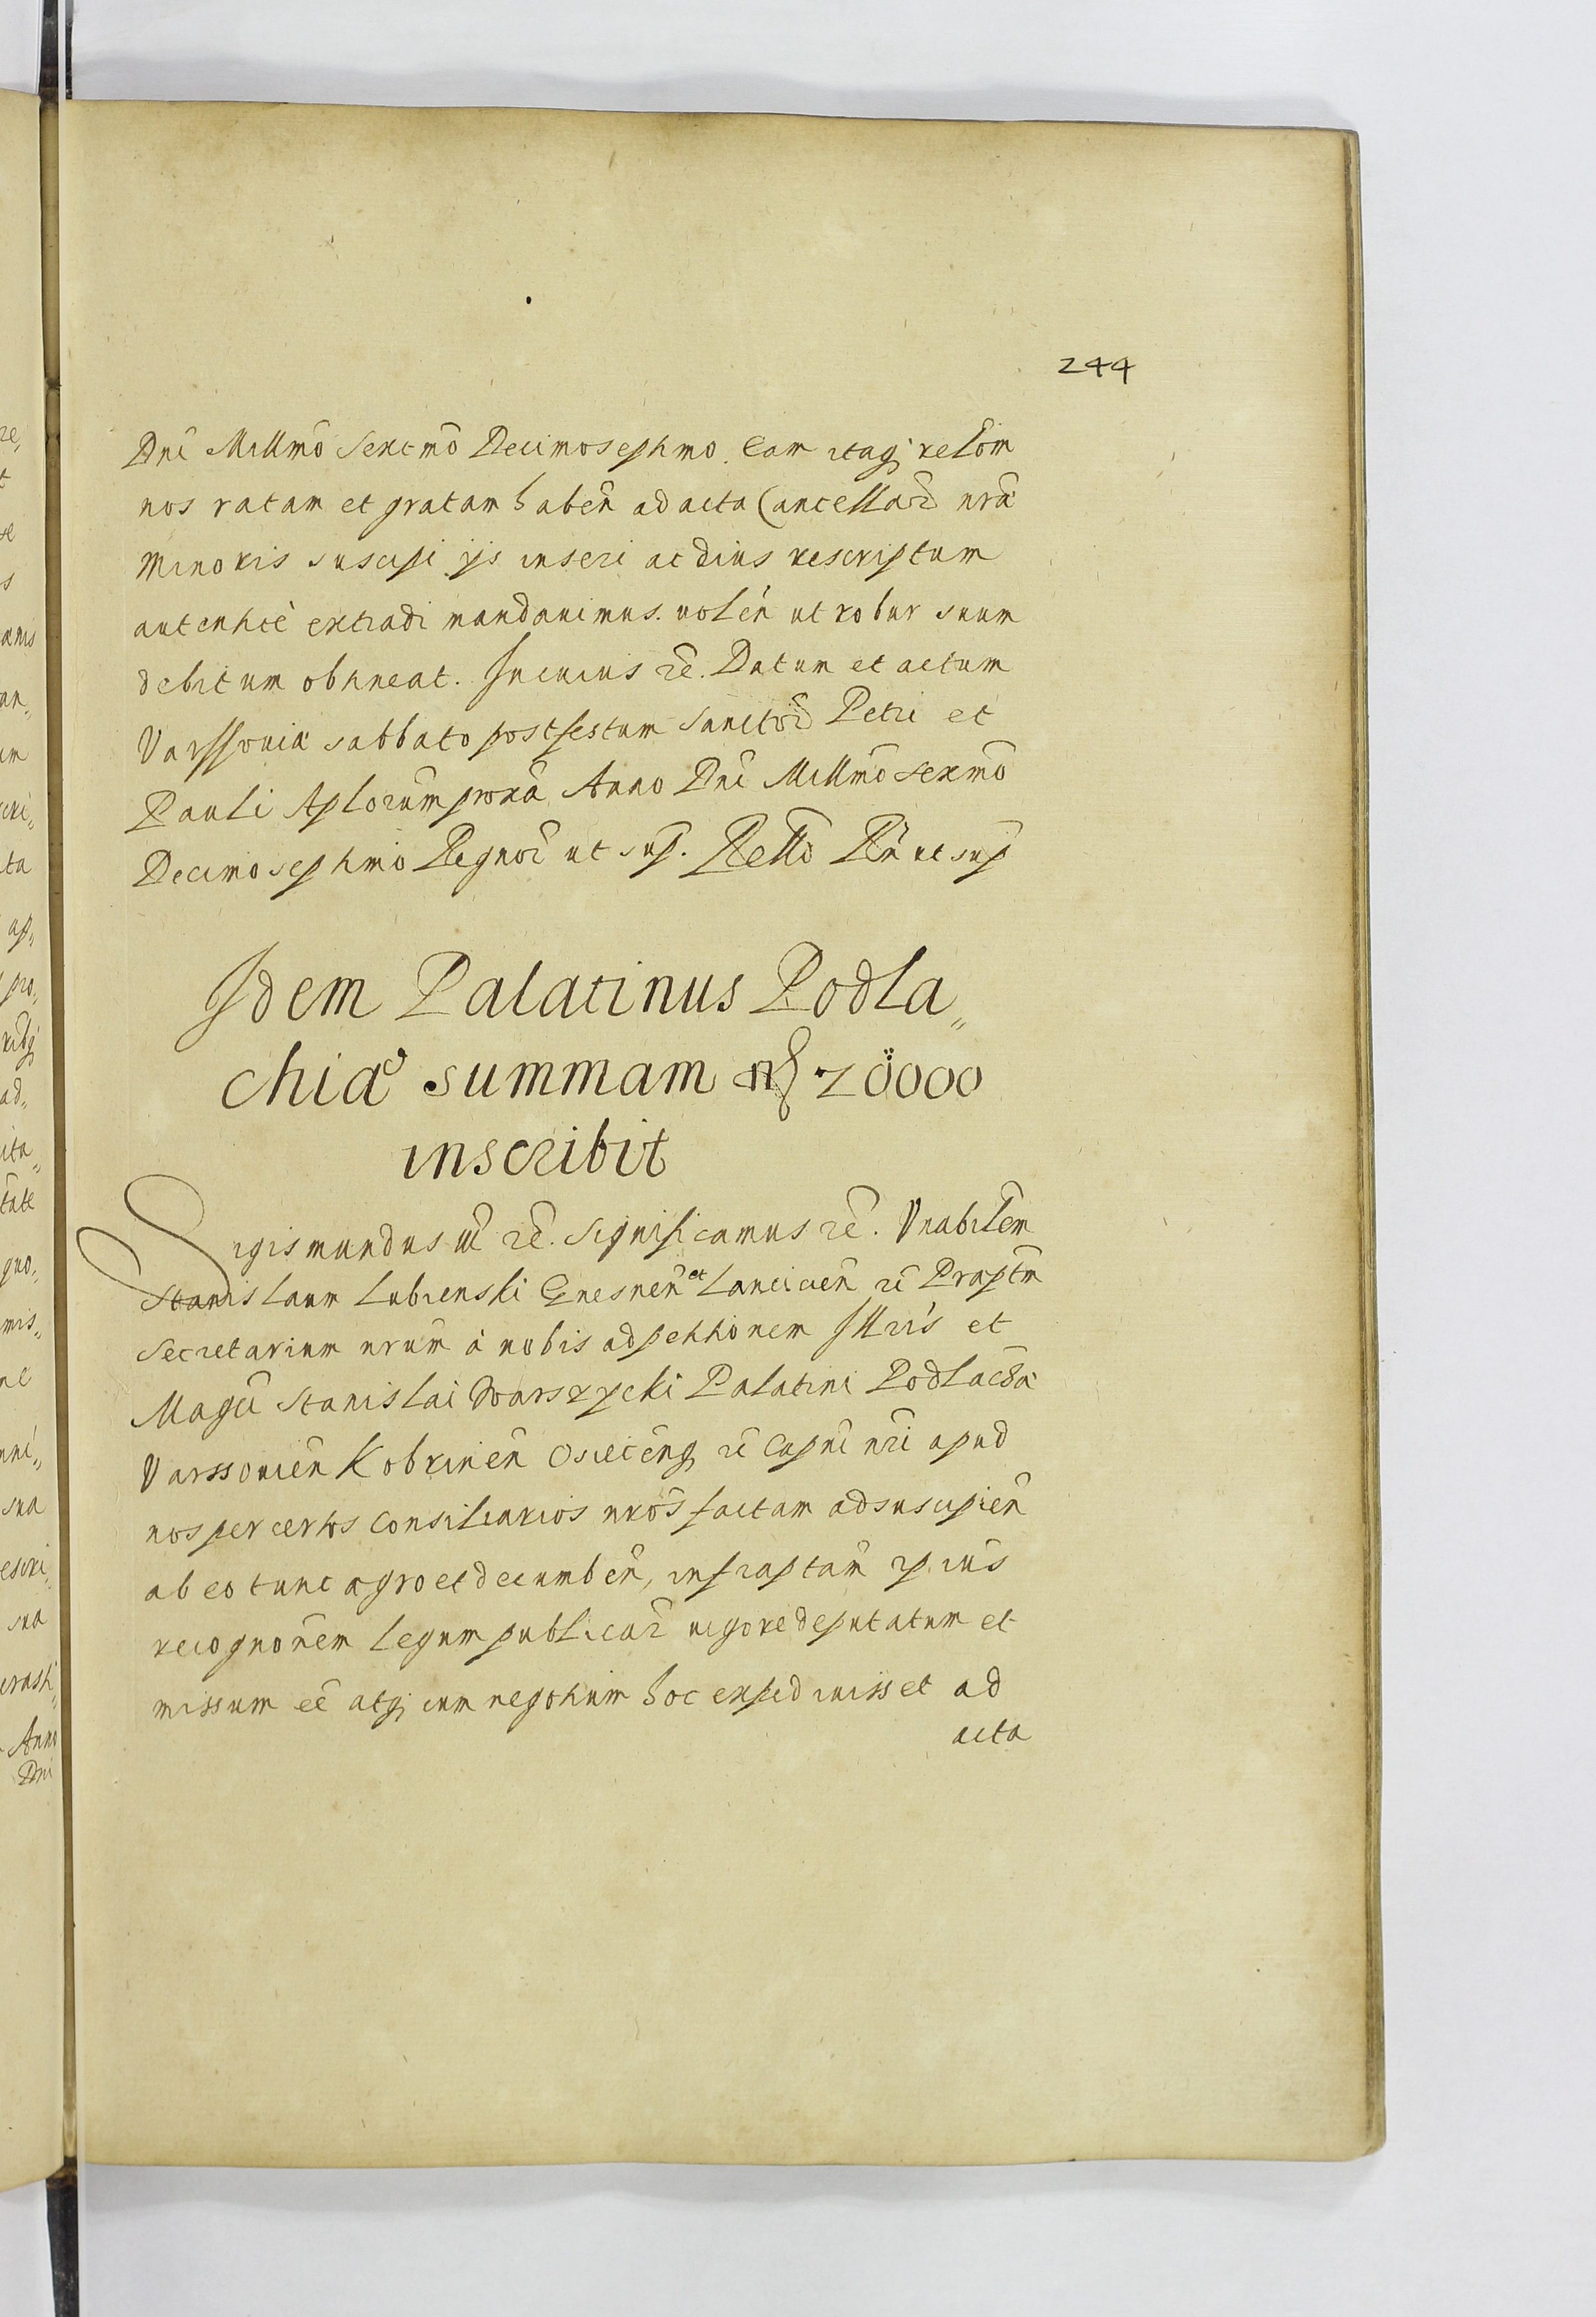 244
Dni Millmo Sexcmo Decimoseptimo. Eam itaq relõm
nos ratam et gratam habeñ ad acta Cancellar nrã
Minoris suscipi ijs inseri ac dius rescriptum
autentice extradi mandauimus. uoleñ ut robur suum
debitum obtineat. In cuius rẽ. Datum et actum
Varssouiæ sabbato post festum Sanctor Petri et
Pauli Aplorum proxã Anno Dni Millmo sexmo
Decimo septimo Regnor ut sup. Rello Rñ ut sup
Idem Palatinus Podla„
chiæ summam 20000
inscribit
Sigismundus III rẽ. Significamus rẽ. Vnabilem
Stanislaum Lubienski Gnesneñ et Lancicieñ rẽ Præptm
Secretarium nrum à nobis ad petitionem Illris et
Magci Stanislai Warszycki Palatini Podlachiæ
Varssouieñ Kobrineñ Osieceñq rẽ Capnei nri apud
nos per certos Consiliarios nros factam ad suscipieñ
ab eo tunc ægro et decumbeñ, infraptam ipius
recognonem legum publicar uigore deputatum et
missum eẽ atq cum negotium hoc expediuisset ad
acta